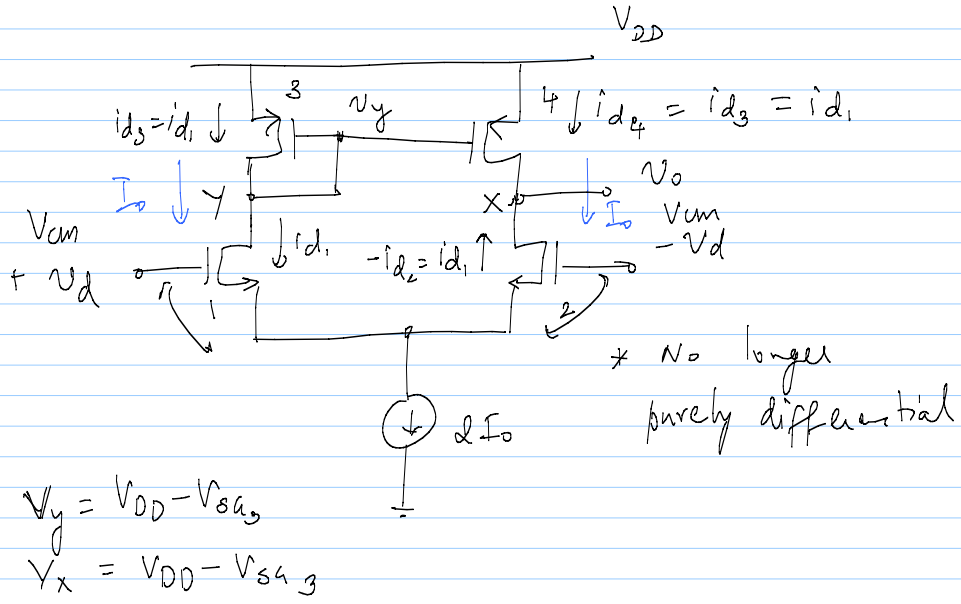 V_DD
3
v_y
4
i_d3 = i_d1
i_d4 = i_d3 = i_d1
I_0
Y
X
v_o
I_0
V_cm
+ v_d
i_d1
-i_d2 = i_d1
V_cm
- v_d
1
2
* No longer
purely differential
2I_0
V_y = V_DD - V_SG3
V_x = V_DD - V_SG3